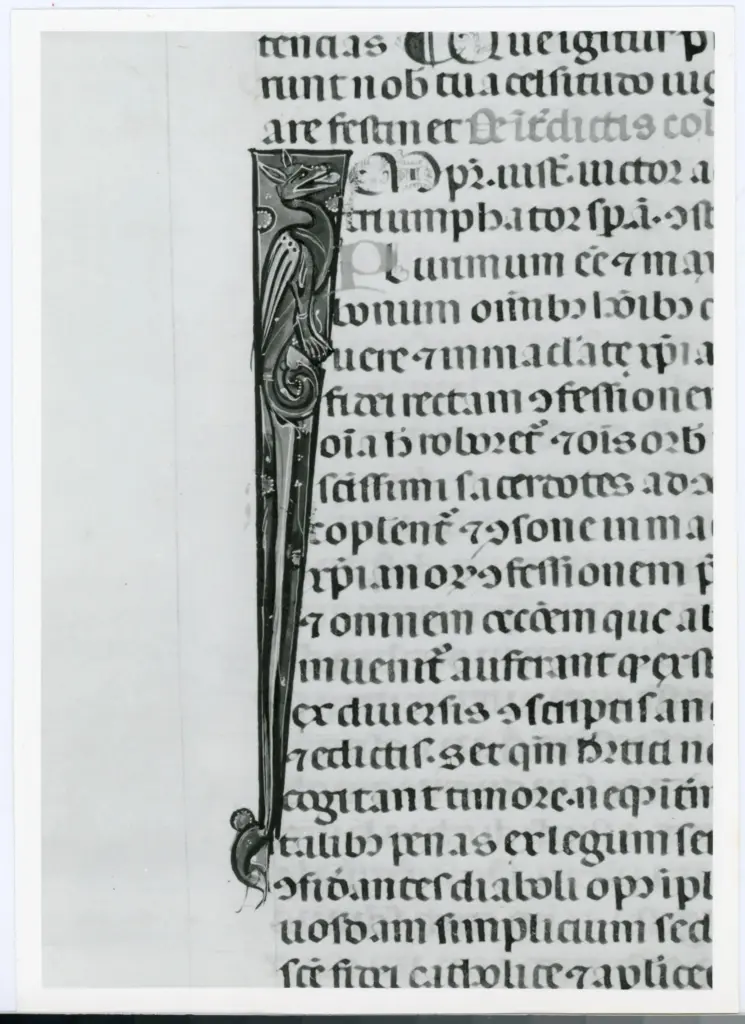 tencias Que igitur p
runt nob tua celsitudo iug
are festinet De ict̃dictis col
Mp̃r. iust̃. uictor a
triumphator sp̃.a. ꝯst
Plurimum ẽe ⁊ ma
bonum om̃ibꝰ hõibꝰ c
uere ⁊ inmaclate xp̃ia
fidei rectam ꝯfessionem
oĩa h̃ roboret̃ ⁊ oĩs orb
scissimi sacerdotes ad
coplent̃ ⁊ ꝯsone inma
xp̃ianor ꝯfessionem p̃
⁊ omnem occõem que ab
inuenit̃ auferant q̃ ex st
ex diuersis ꝯscriptis an
⁊ edictis. Set qm̃ hr̃tici ne
cogitant timore. neq̃ it̃m
talibꝰ penas ex legum se
ꝯfidantes diaboli opꝰ ipl
uosdam simplicium sed
scẽ fidei catholice ⁊ aplice